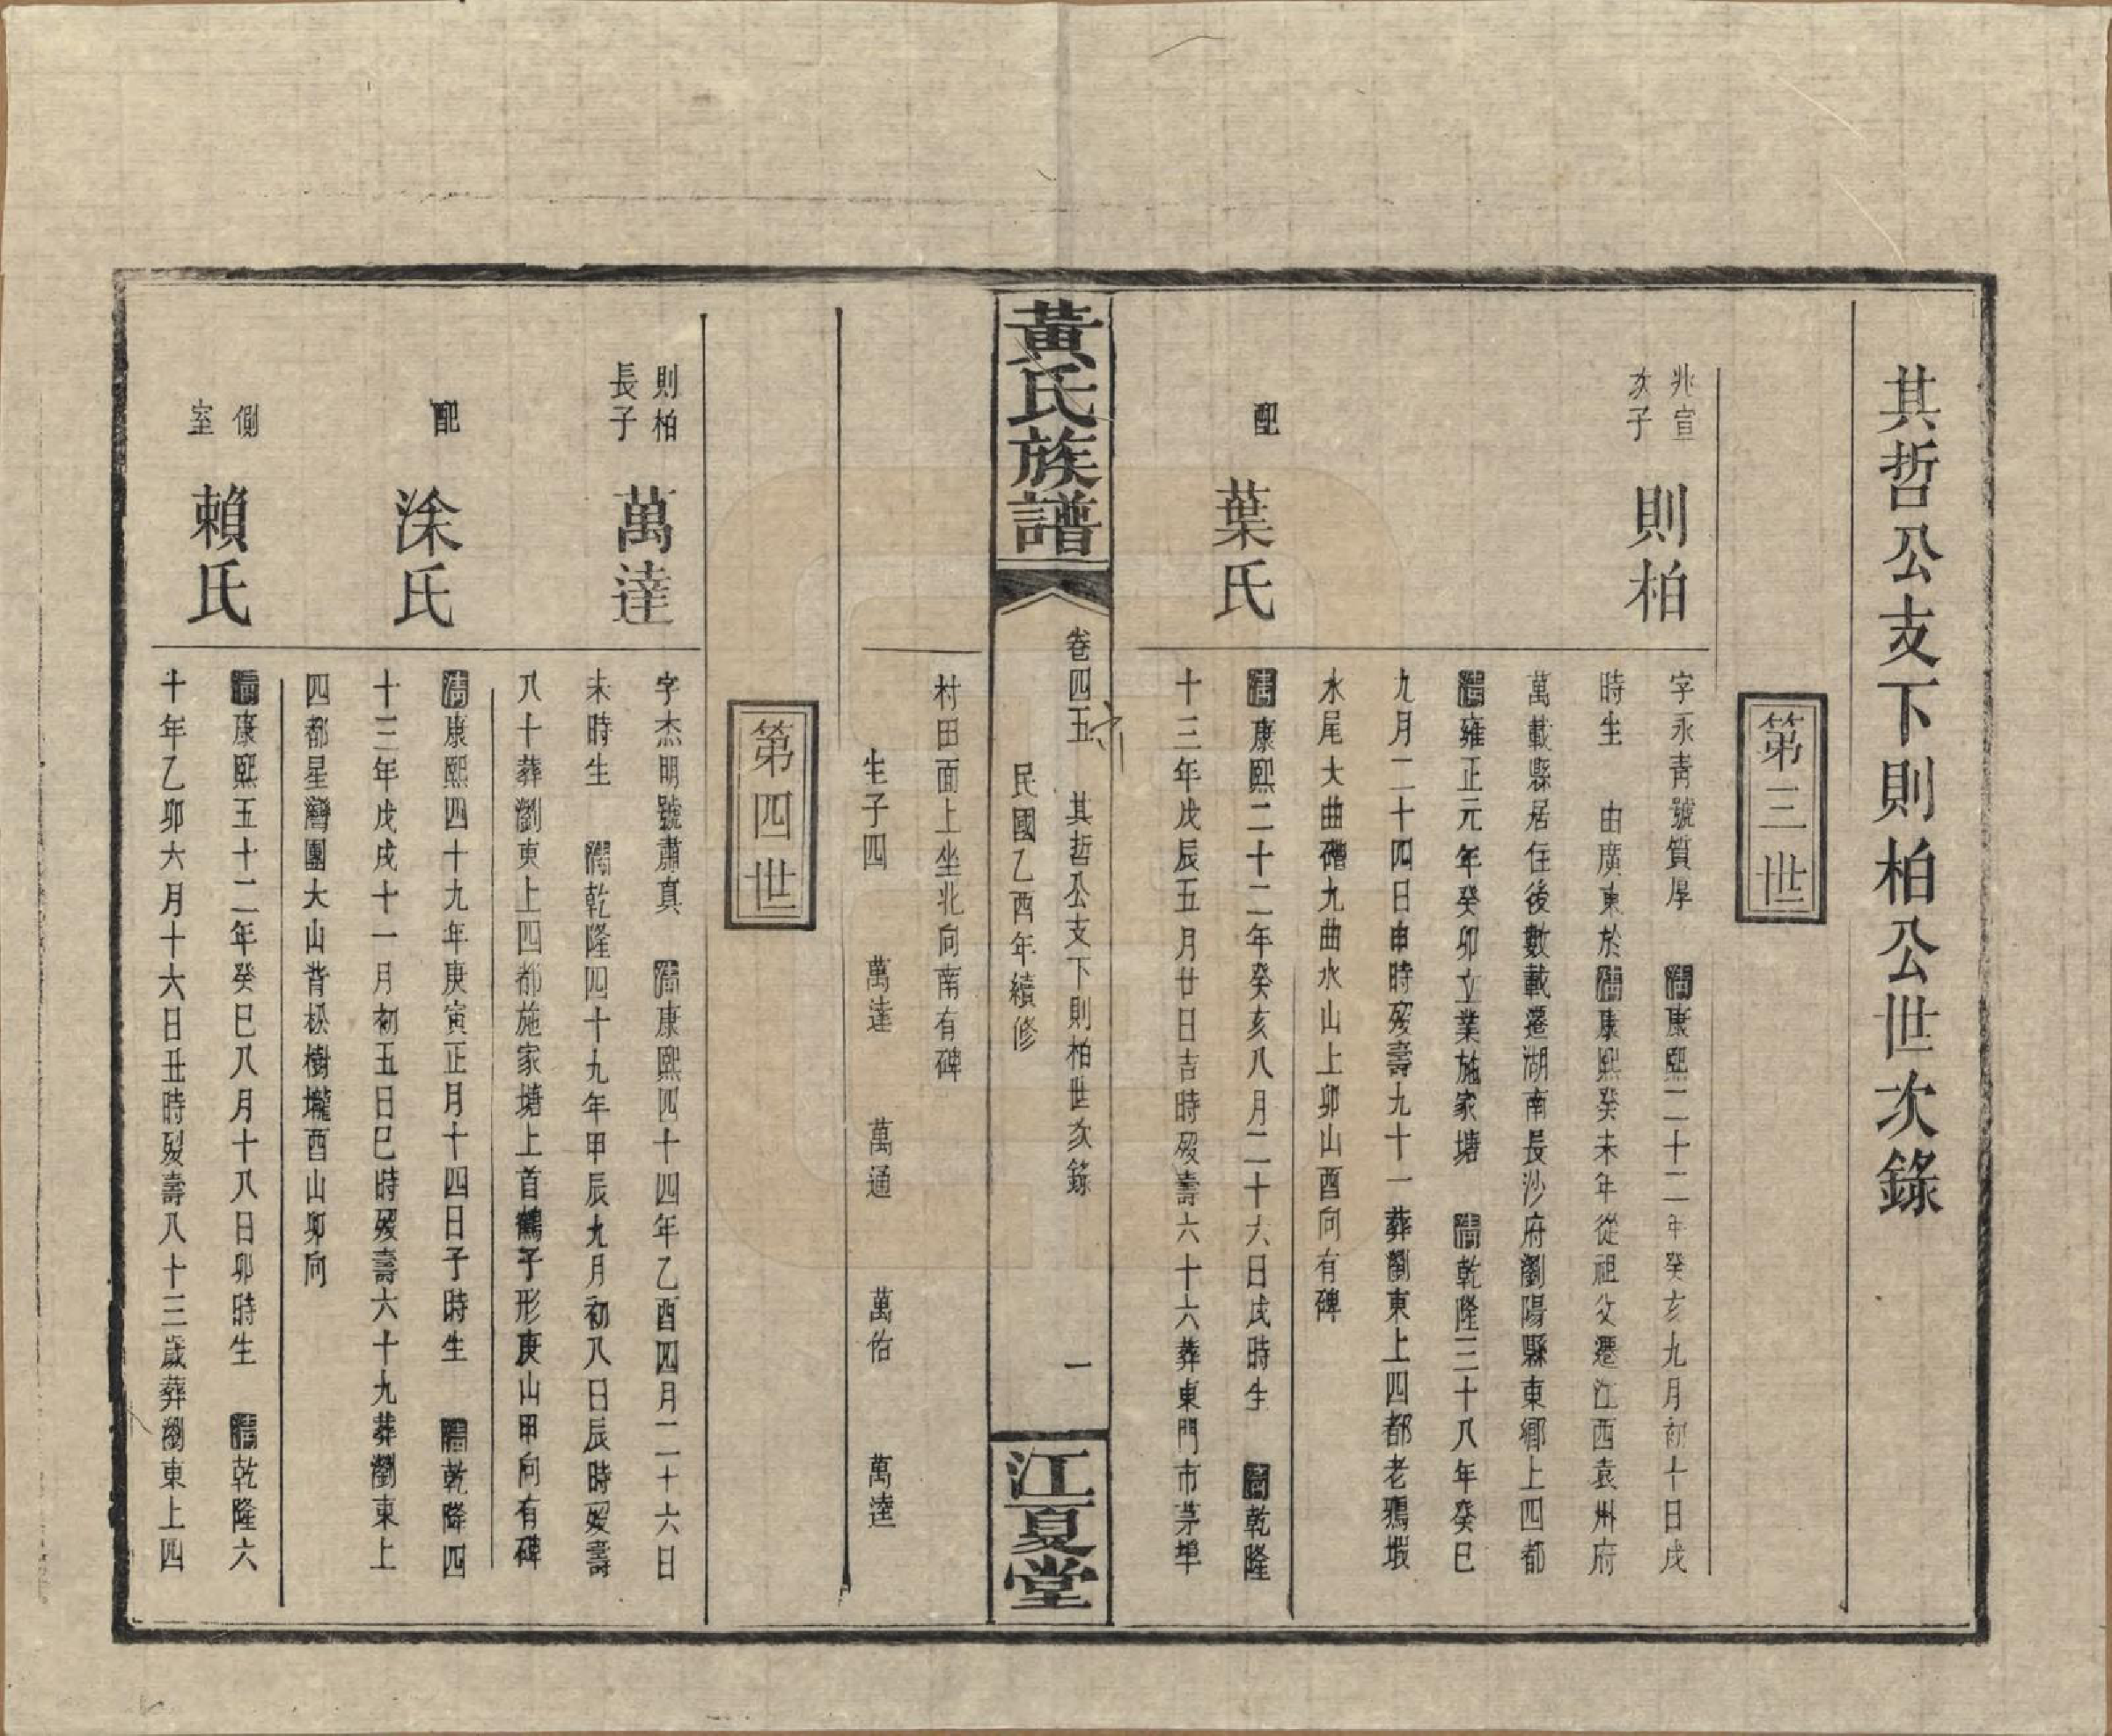 其哲公支下則柏公世次錄
第三世
兆宣
次子
則柏
字永青號質厚 清康熙二十二年癸亥九月初十日戌
時生 由廣東於清康熙癸未年從祖父遷江西袁州府
萬載縣居住後數載遷湖南長沙府瀏陽縣東鄉上四都
清雍正元年癸卯立業施家塘 清乾隆三十八年癸巳
九月二十四日申時歿壽九十一葬瀏東上四都老鴉塅
水尾大曲磜九曲水山上卯山酉向有碑
配
葉氏
清康熙二十二年癸亥八月二十六日戌時生 清乾隆
十三年戊辰五月廿日吉時歿壽六十六葬東門市茅埠
黃氏族譜
卷四五 其哲公支下則柏世次錄 一
民國乙酉年續修
江夏堂
村田面上坐北向南有碑
生子四 萬達 萬通 萬佑 萬逵
第四世
則柏
長子
萬達
字杰明號肅真 清康熙四十四年乙酉四月二十六日
未時生 清乾隆四十九年甲辰九月初八日辰時歿壽
八十葬瀏東上四都施家塘上首鶴子形庚山甲向有碑
配
涂氏
清康熙四十九年庚寅正月十四日子時生 清乾隆四
十三年戊戌十一月初五日巳時歿壽六十九葬瀏東上
四都星灣團大山背松樹壠酉山卯向
側
室
賴氏
清康熙五十二年癸巳八月十八日卯時生 清乾隆六
十年乙卯六月十六日丑時歿壽八十三歲葬瀏東上四